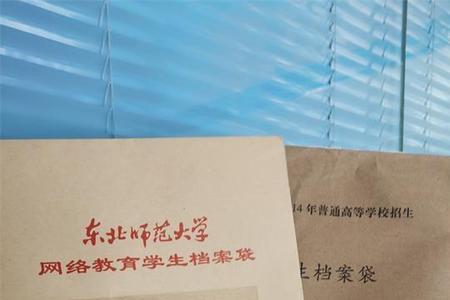 东北师范大学
网络教育学生档案袋
14年普通高等学校招生
生档案袋